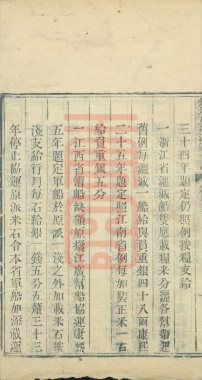 三十四年題定仍照例按糧支給
一浙江省漕減船隻應載糧米分灑各幫帶運
舊例每漕減一船給與負重銀四十八兩康熙
二十五年題定照江南省例每加裝正米一石
給負重銀五分
一江西省漕船缺額原撥江廣幫船協運康熙
五年題定軍船於原派一淺之外加載米石按
淺支給行月每石給銀一錢五分五厘三十三
年停止協運原派米石令本省軍船加添載運